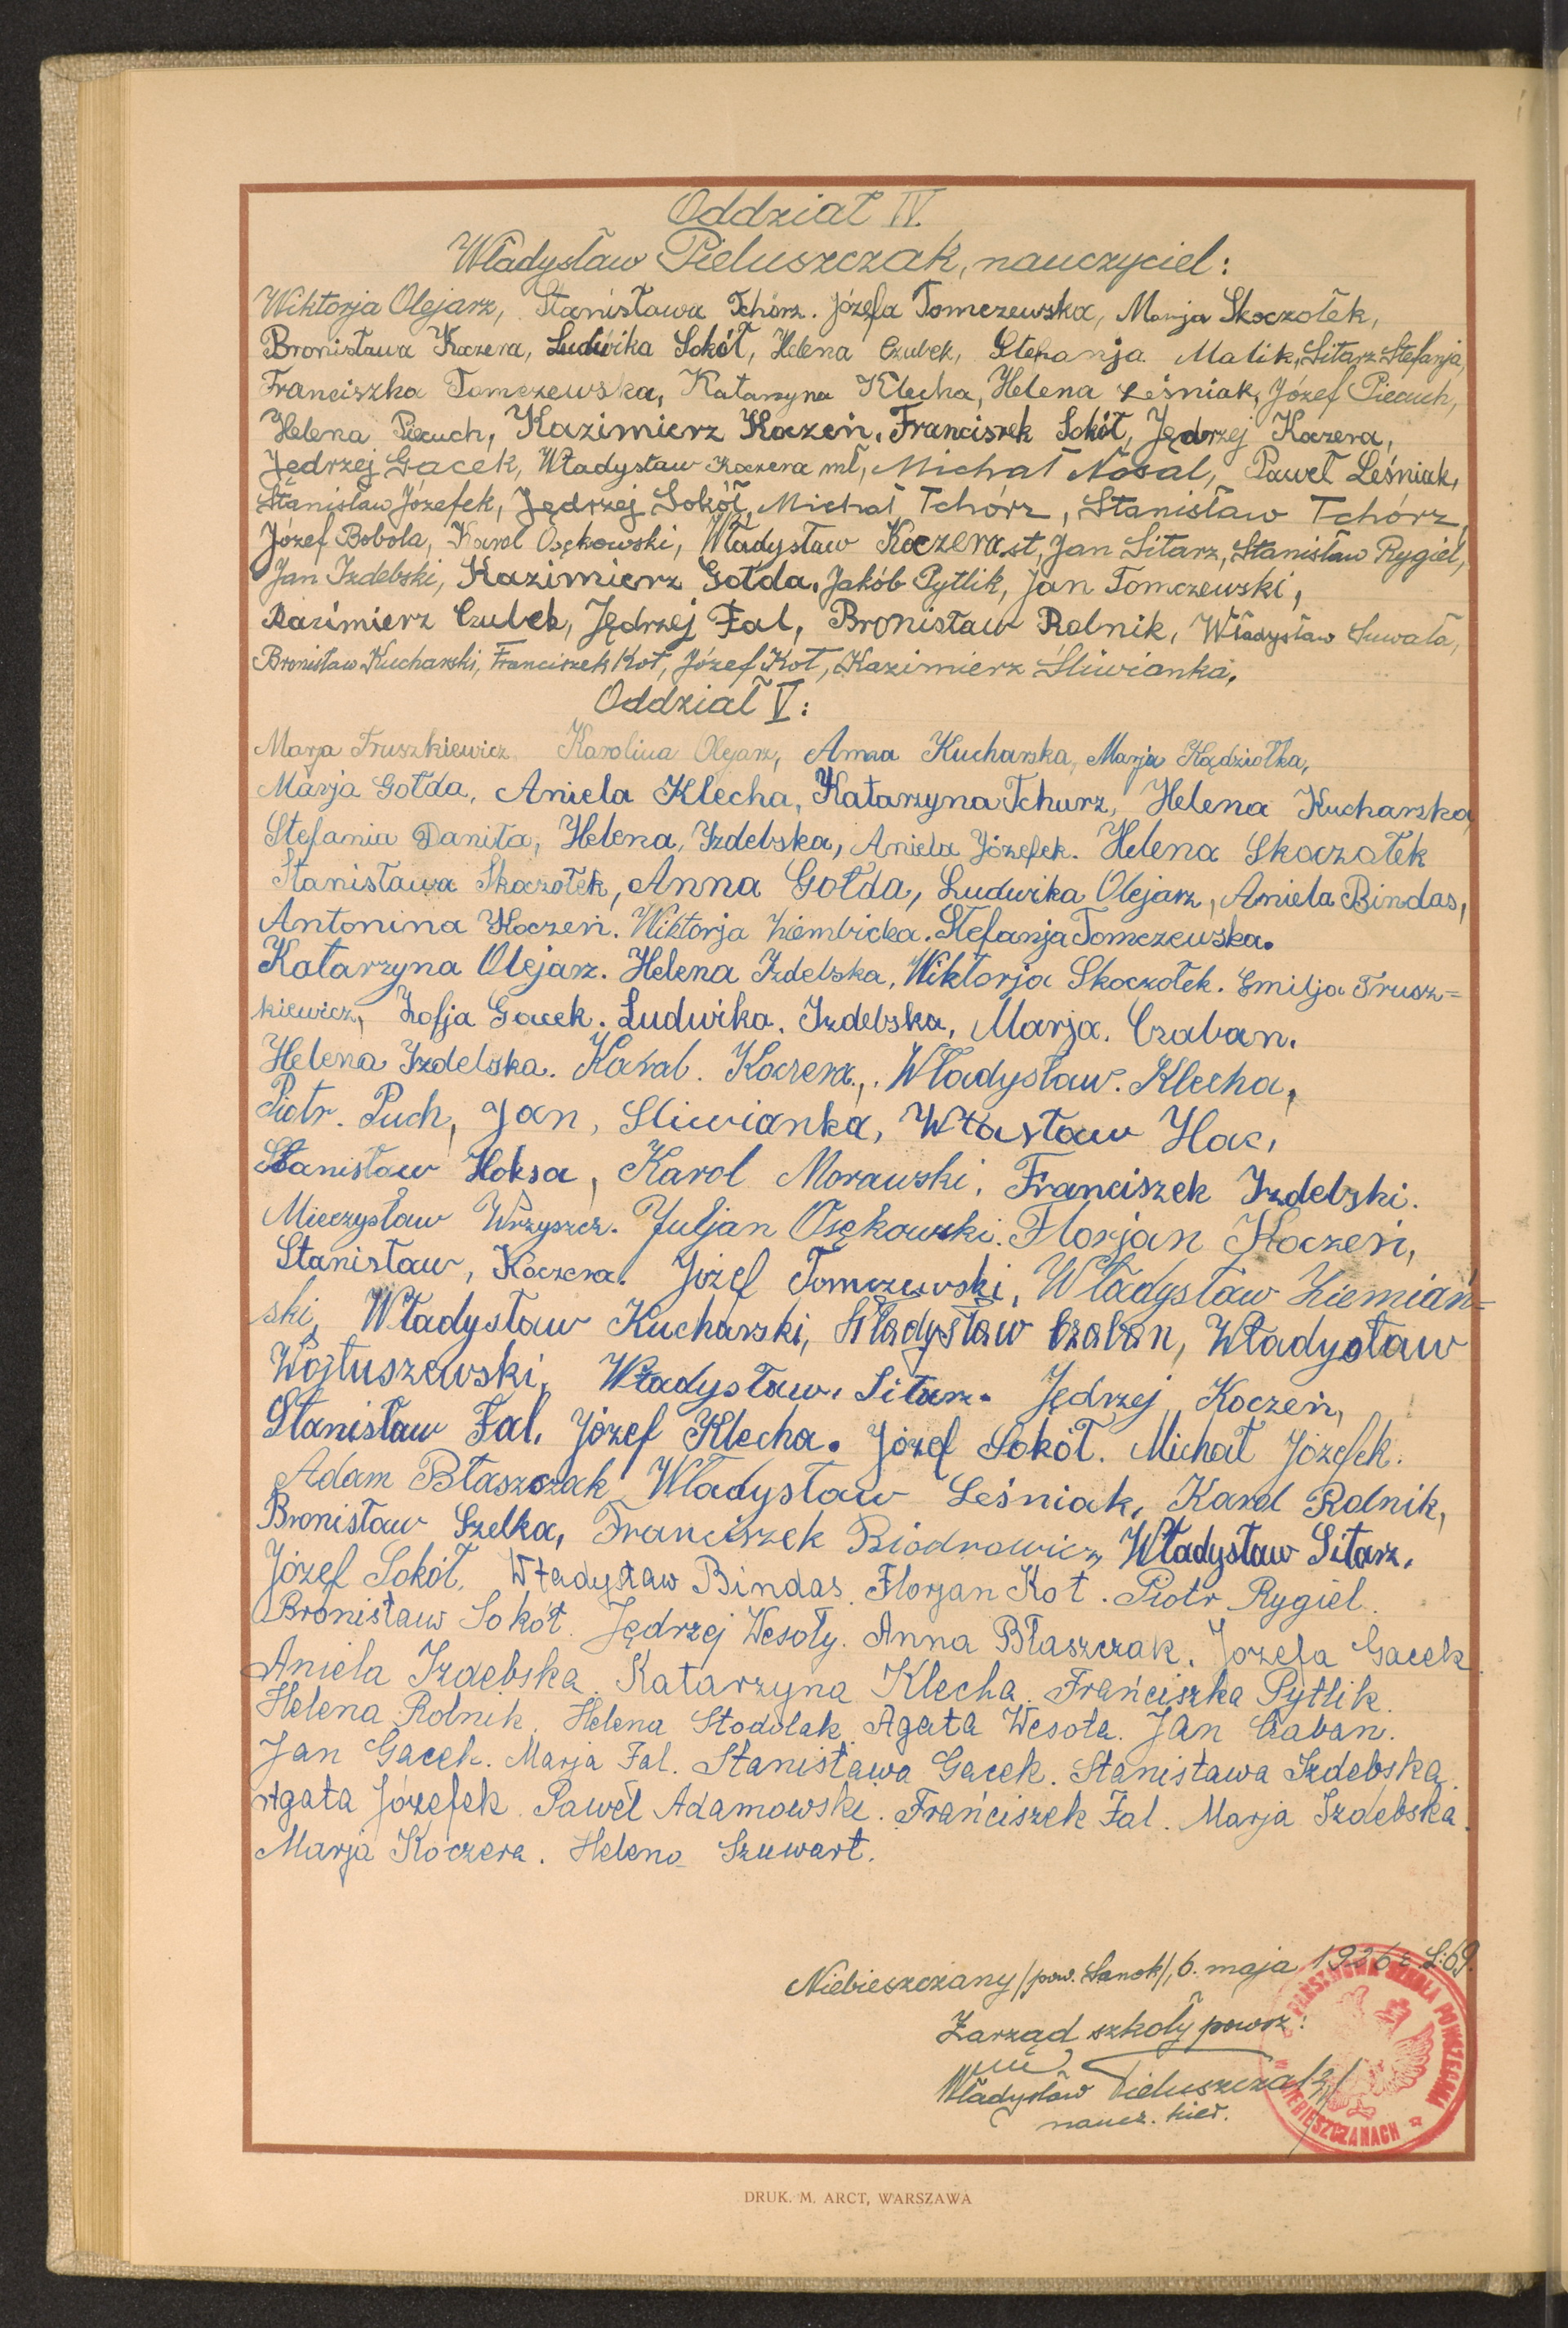 Oddział IV.
Władysław Pieluszczak, nauczyciel:
Wiktorja Olejarz, Stanisława Tchórz. Józefa Tomczewska, Marja Skoczołek,
Bronisława Koczera, Ludwika Sokół, Helena Czubek, Stefanja Malik, Sitarz Stefanja,
Franciszka Tomczewska, Katarzyna Klecha, Helena Leśniak, Józef Piecuch,
Helena Piecuch, Kazimierz Koczeń, Franciszek Sokół, Jędrzej Koczera,
Jędrzej Gacek, Władysław Koczera mł, Michał Nosal, Paweł Leśniak,
Stanisław Józefek, Jędrzej Sokół, Michał Tchórz, Stanisław Tchórz,
Józef Bobola, Karol Osękowski, Władysław Koczera st, Jan Sitarz, Stanisław Rygiel,
Jan Izdebski, Kazimierz Gołda, Jakób Pytlik, Jan Tomczewski,
Kazimierz Czubek, Jędrzej Fal, Bronisław Rolnik, Władysław Suwała,
Bronisław Kucharski, Franciszek Kot, Józef Kot, Kazimierz Śliwianka.
Oddział V:
Marja Truszkiewicz Karolina Olejarz, Anna Kucharska, Marja Kądziołka,
Marja Gołda, Aniela Klecha, Katarzyna Tchurz, Helena Kucharska,
Stefania Daniła, Helena Izdebska, Aniela Józefek. Helena Skoczołek
Stanisława Skoczołek, Anna Gołda, Ludwika Olejarz, Aniela Bindas,
Antonina Koczeń. Wiktorja Ziembicka. Stefanja Tomczewska.
Katarzyna Olejarz. Helena Izdebska, Wiktorja Skoczołek. Emilja Trusz=
kiewicz, Zofja Gacek. Ludwika. Izdebska, Marja. Czaban.
Helena Izdebska. Karol. Koczera,. Władysław. Klecha,
Piotr. Puch, Jan, Sliwianka, Włastaw Hac,
Stanisław Hoksa, Karol Morawski, Franciszek Izdebski.
Mieczysław Wrzyszcz. Juljan Osękowski. Florjan Koczeń,
Stanisław, Koczera. Józef Tomczewski, Władysław Ziemiań=
ski, Władysław Kucharski, Władysław Czaban, Władysław
Wojtuszewski, Władysław, Sitarz. Jędrzej Koczeń,
Stanisław Fal, Józef Klecha. Józef Sokół. Michał Józefek.
Adam Błaszczak Władysław Leśniak, Karol Rolnik,
Bronisław Szelka, Franciszek Biodrowicz, Władysław Sitarz.
Józef Sokół. Władysław Bindas. Florjan Kot. Piotr Rygiel.
Bronisław Sokół. Jędrzej Wesoły. Anna Błaszczak. Józefa Gacek
Aniela Izdebska. Katarzyna Klecha. Frańciszka Pytlik.
Helena Rolnik. Helena Stodolak. Agata Wesoła. Jan Czaban.
Jan Gacek. Marja Fal. Stanisława Gacek. Stanisława Izdebska.
Agata Józefek. Paweł Adamowski. Frańciszek Fal. Marja Izdebska.
Marja Koczera. Helena Szuwart.
Niebieszczany /pow. Sanok/, 6. maja 1926 r. L:69.
Zarząd szkoły powsz:
Władysław Pieluszczak
naucz. kier.
PAŃSTWOWA SZKOŁA POWSZECHNA W NIEBIESZCZANACH
DRUK. M. ARCT, WARSZAWA